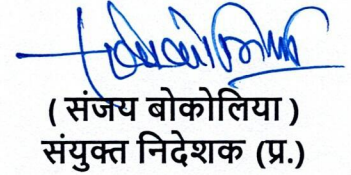 ( संजय बोकोलिया )
संयुक्त निदेशक (प्र.)